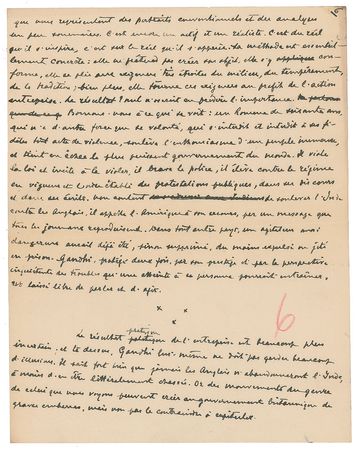 6
que vous représentent des portraits conventionnels et des analyses
un peu sommaires. C'est encore un actif et un réaliste. C'est du réel
qu'il s'inspire, c'est sur le réel qu'il s'appuie. Sa méthode est essentiel-
lement concrète : elle ne prétend pas créer son objet, elle s'y applique con-
forme, elle se plie aux exigences très étroites du milieu, du tempérament,
de la tradition ; bien plus, elle tourne ces exigences au profit de l'action
entreprise. Le résultat ? nul n'oserait en prédire l'importance.
Bornons-nous à ce qui se voit : un homme de soixante ans,
qui n'a d'autre force que sa volonté, qui s'interdit et interdit à ses fi-
dèles tout acte de violence, soulève l'enthousiasme d'un peuple immense,
et tient en échec le plus puissant gouvernement du monde. Il viole
la loi et incite à la violer, il brave la police, il élève contre le régime
en vigueur et l'ordre établi des protestations publiques, dans ses discours
et dans ses écrits. Non content de soulever l'Inde
contre les Anglais, il appelle l'Amérique à son secours, par un message que
tous les journaux reproduisent. Dans tout autre pays, un agitateur aussi
dangereux aurait déjà été, sinon supprimé, du moins appréhendé ou jeté
en prison. Gandhi, protégé deux fois, par son prestige et par la perspective
inquiétante des troubles qu'une atteinte à sa personne pourrait entraîner,
est laissé libre de parler et d'agir.
x x
x
6
Le résultat pratique de l'entreprise est beaucoup plus
incertain. Et là-dessus, Gandhi lui-même ne doit pas garder beaucoup
d'illusions. Il sait fort bien que jamais les Anglais n'abandonneront l'Inde,
à moins d'en être littéralement chassés. Or des mouvements du genre
de celui que nous voyons peuvent créer au gouvernement britannique de
graves embarras, mais non pas le contraindre à capituler.